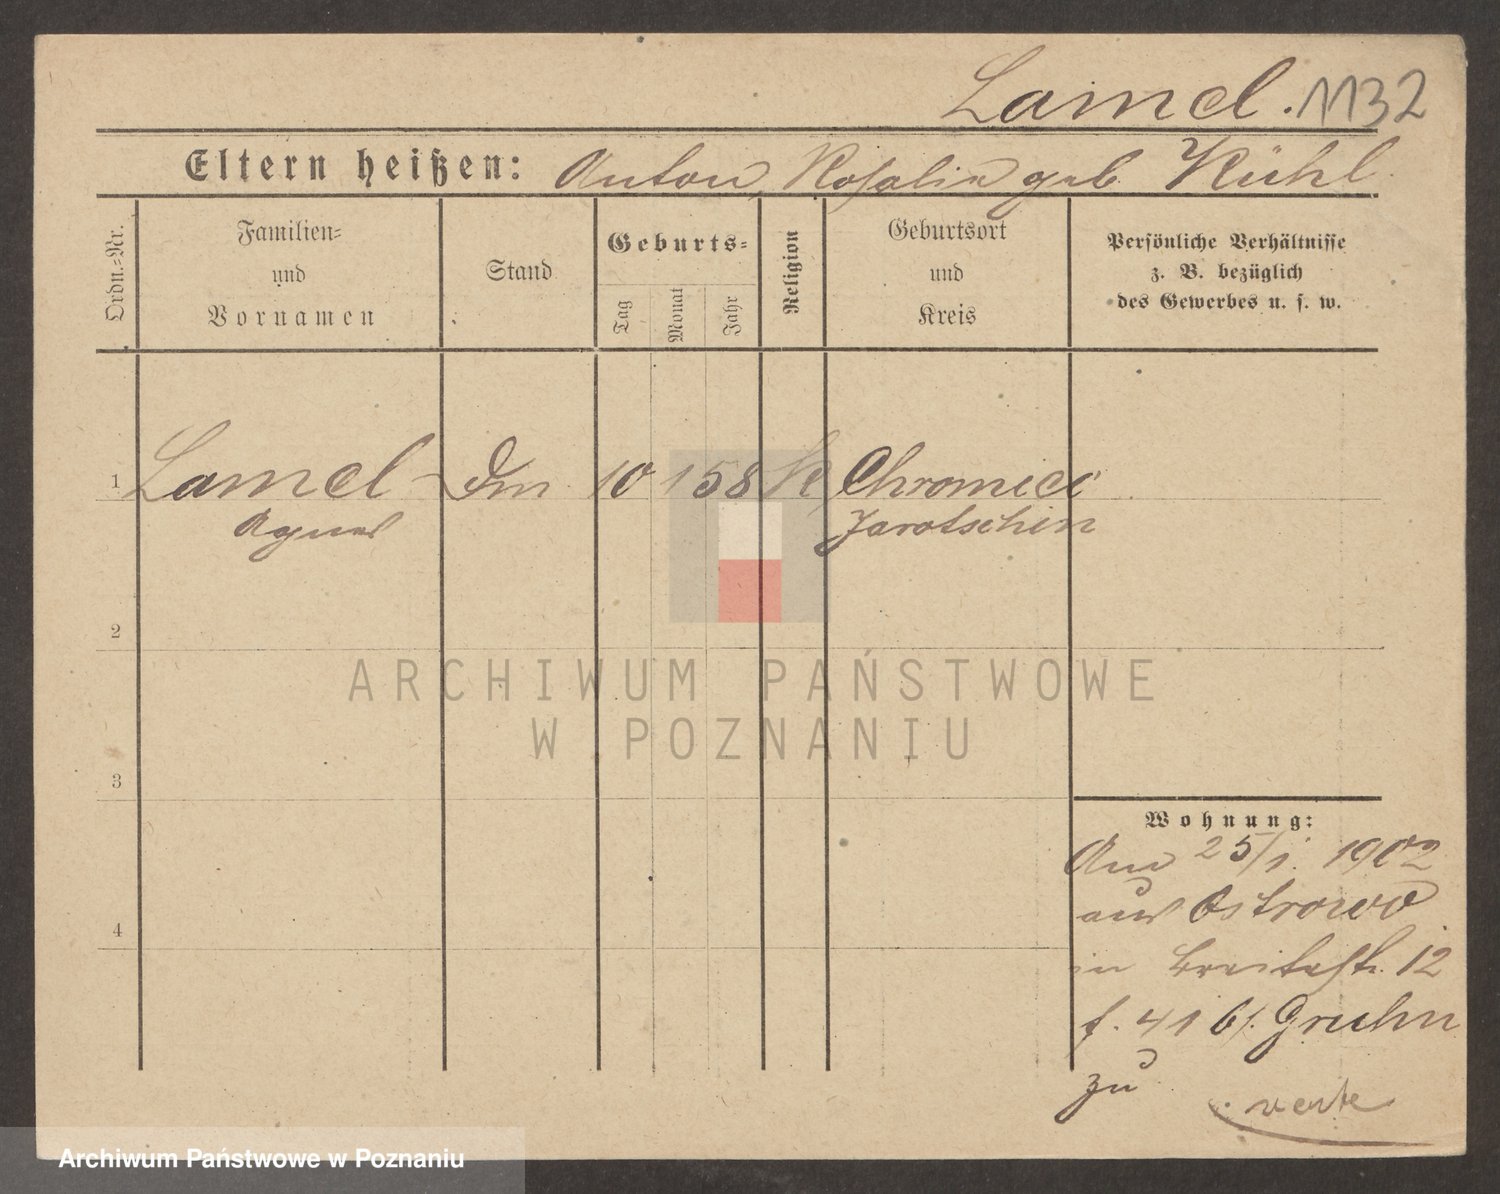 Lamel. 1132
Eltern heißen: Anton, Rosalia geb. Kühl.
Ordn.-Nr.
Familien-
und
Vornamen
Stand
Geburts-
Tag
Monat
Jahr
Religion
Geburtsort
und
Kreis
Persönliche Verhältnisse
z. B. bezüglich
des Gewerbes u. s. w.
1 Lamel 10 1 58 K Chromiec
Agnes Jarotschin
2
3
4
Wohnung:
Am 25/1. 1902
aus Ostrowo
in Breitestr. 12
b/. Gruhn
zu
verte
ARCHIWUM PAŃSTWOWE
W POZNANIU
Archiwum Państwowe w Poznaniu